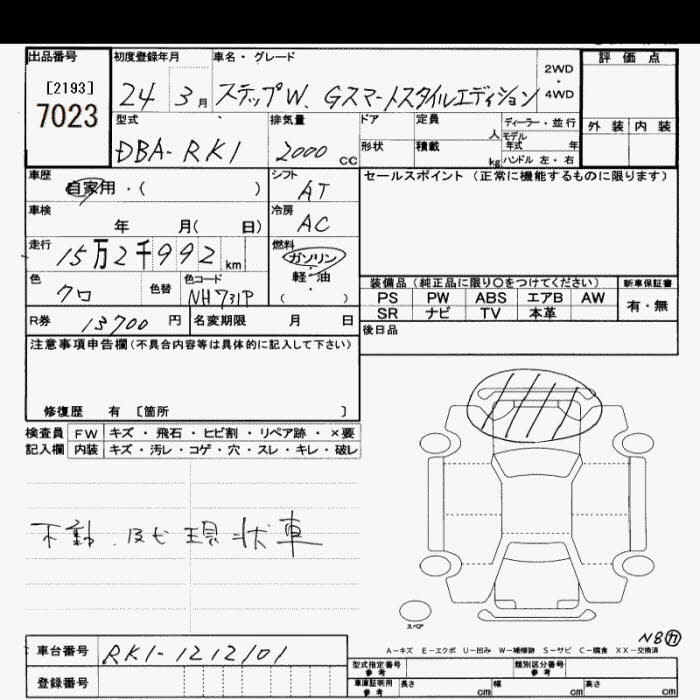 出品番号 初度登録年月 車名・グレード 評価点
[2193] 24 3月 ステップW. Gスマートスタイルエディション 2WD・4WD
7023 型式 排気量 ドア 定員 人 ディーラー・並行 外装 内装
DBA-RK1 2000 CC 形状 積載 kg モデル年式 年 ハンドル 左・右
車歴 自家用・( ) シフト AT セールスポイント(正常に機能するものに限ります)
車検 年 月( 日) 冷房 AC
走行 15万2千992 km 燃料 ガソリン・軽・油 ( )
色 クロ 色替 色コード NH731P
装備品(純正品に限り○をつけてください) 新車保証書
PS PW ABS エアB AW 有・無
SR ナビ TV 本革
R券 13700 円 名変期限 月 日 後日品
注意事項申告欄(不具合内容等は具体的に記入して下さい)
修復歴 有 〔箇所 〕
検査員 FW キズ・飛石・ヒビ割・リペア跡・×要
記入欄 内装 キズ・汚レ・コゲ・穴・スレ・キレ・破レ
不動 現状車
スペア
N8カ
A-キズ E-エクボ U-凹み W-補修跡 S-サビ C-腐食 XX-交換済
車台番号 RK1-1212101 型式指定番号 参考 類別区分番号 参考
登録番号 車庫証明用 参考 長さ cm 幅 cm 高さ cm